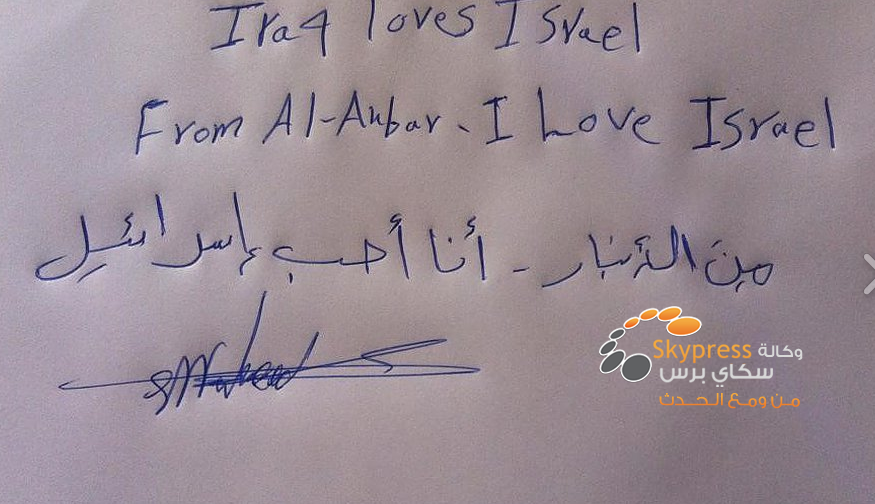 Iraq loves Israel
From Al-Anbar - I Love Israel
من الأنبار - أنا أحب إسرائيل
Skypress وكالة
سكاي برس
من ومع الحدث